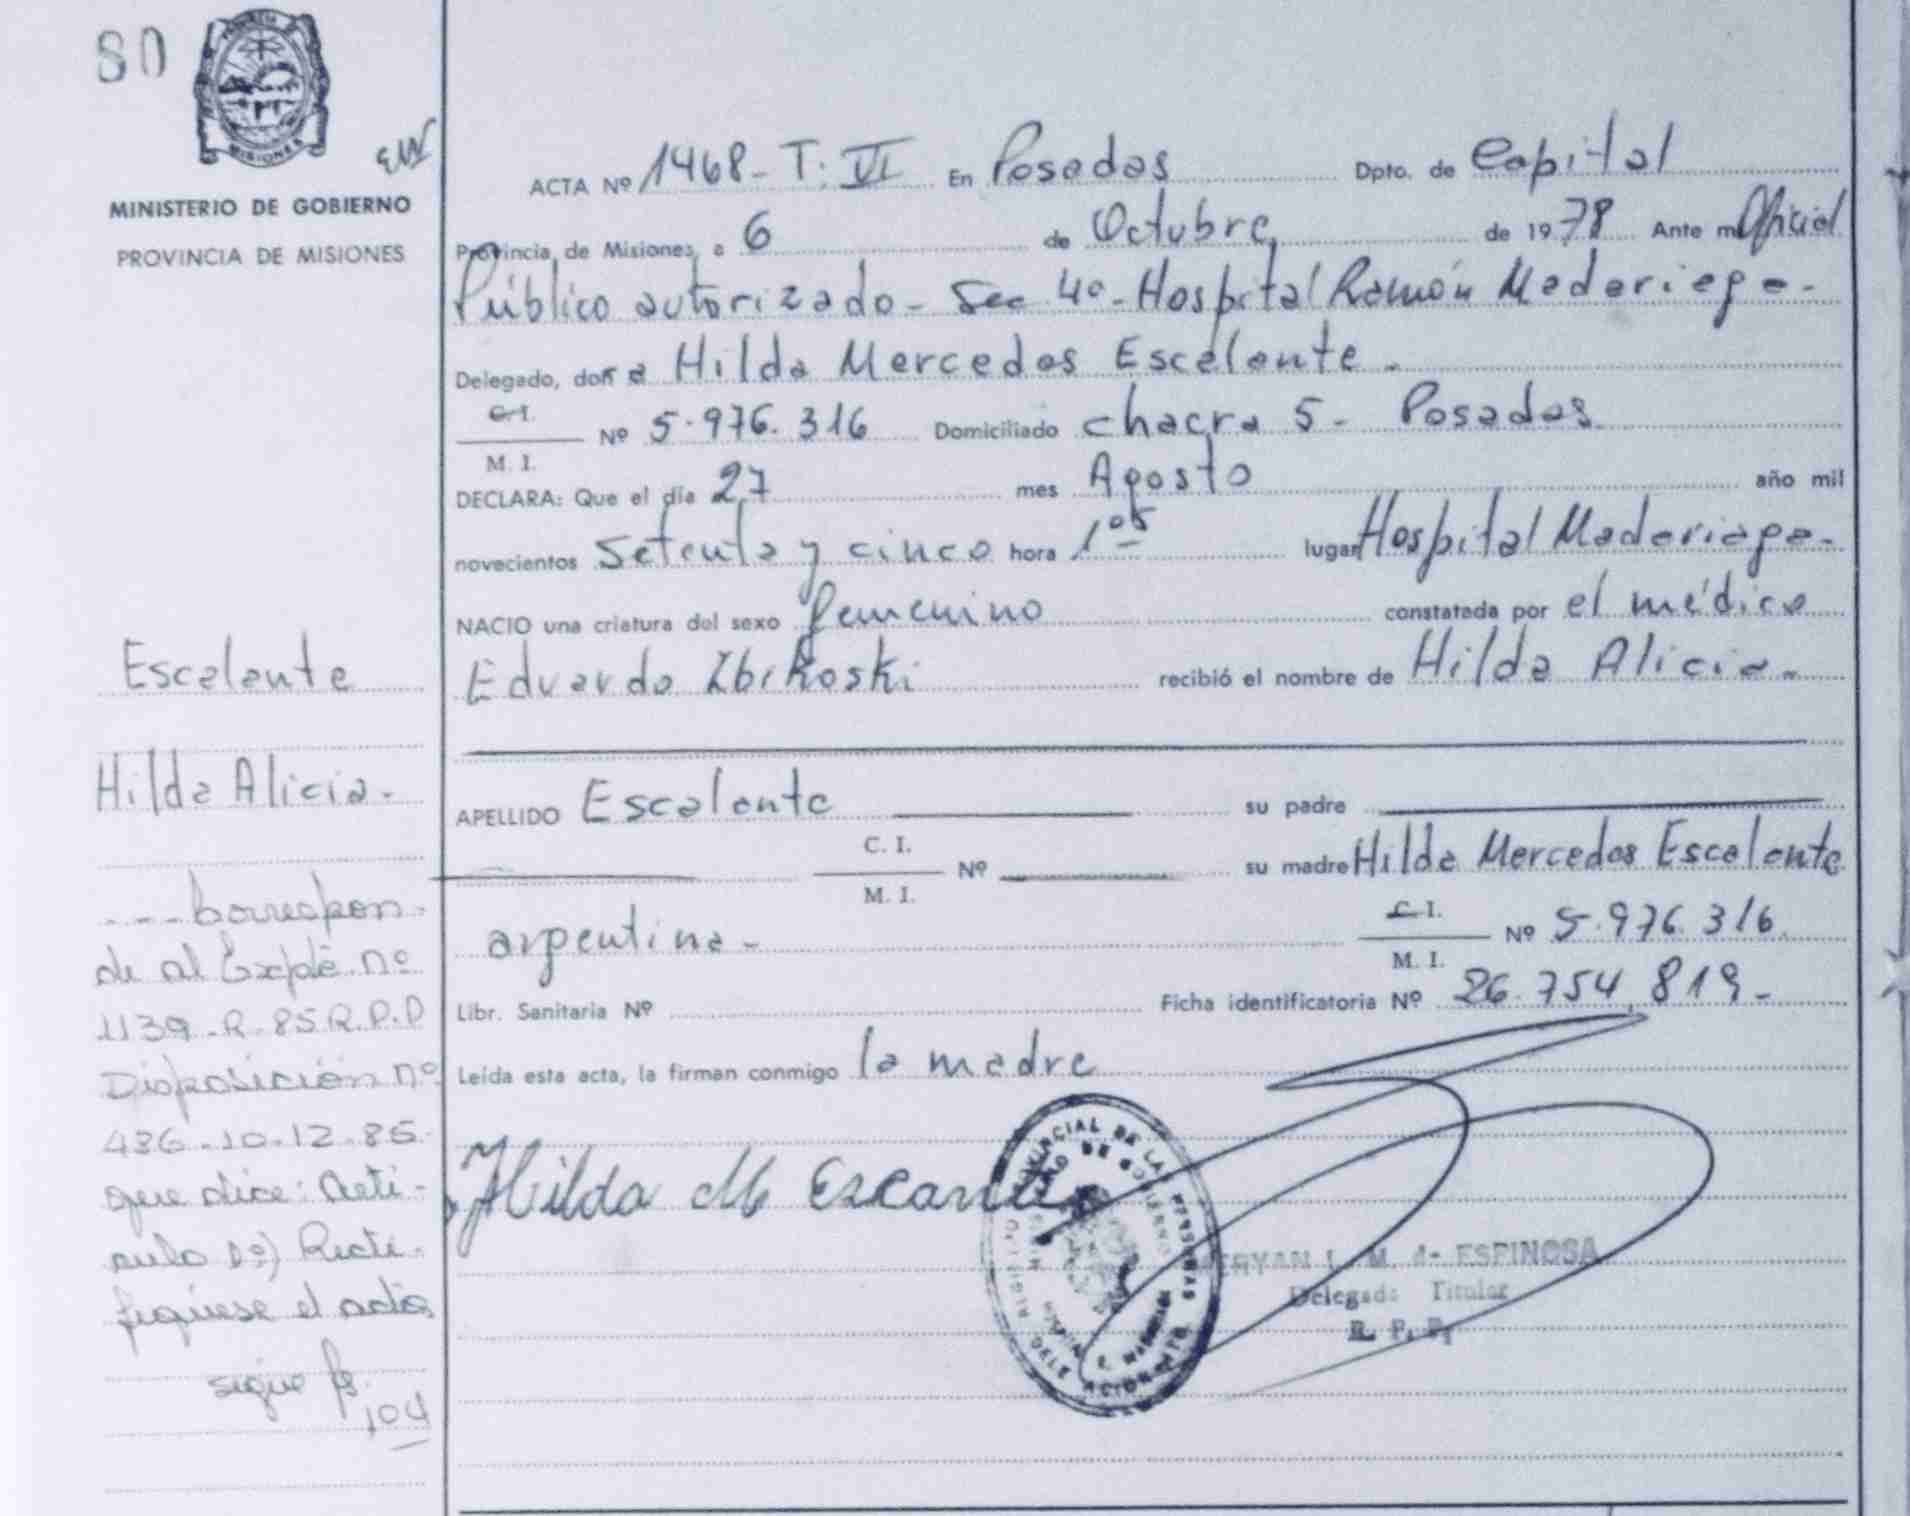 80
MISIONES
MINISTERIO DE GOBIERNO
PROVINCIA DE MISIONES
ACTA Nº 1468 - T: VI En Posadas Dpto. de Capital
Provincia de Misiones, a 6 de Octubre de 1978 Ante mi Oficial
Público autorizado - Sec 4º - Hospital Ramón Madariaga -
Delegado, doña Hilda Mercedes Escalante -
C. I.
M. I.
Nº 5.976.316 Domiciliado chacra 5 - Posadas
DECLARA: Que el día 27 mes Agosto año mil
novecientos setenta y cinco hora 1 05 lugar Hospital Madariaga -
NACIO una criatura del sexo femenino constatada por el médico
Eduardo Zbikoski recibió el nombre de Hilda Alicia -
APELLIDO Escalante su padre
C. I.
M. I.
Nº su madre Hilda Mercedes Escalante
argentina -
C. I.
M. I.
Nº 5.976.316
Libr. Sanitaria Nº Ficha identificatoria Nº 26.754.819 -
Leída esta acta, la firman conmigo la madre
Hilda M Escalante
M. de ESPINOSA
Delegada Titular
R. P. P.
Escalante
Hilda Alicia -
--- Correspon-
de al Expte nº
1139-R-85 R.P.P
Disposición nº
436-10-12-85
que dice: Artí-
culo 1º) Recti-
fíquese el acta
sigue fs.
104